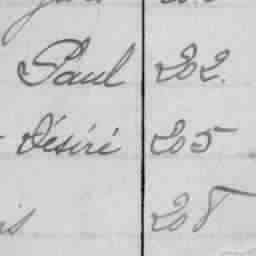 Paul 202.
Désiré 205
is 208